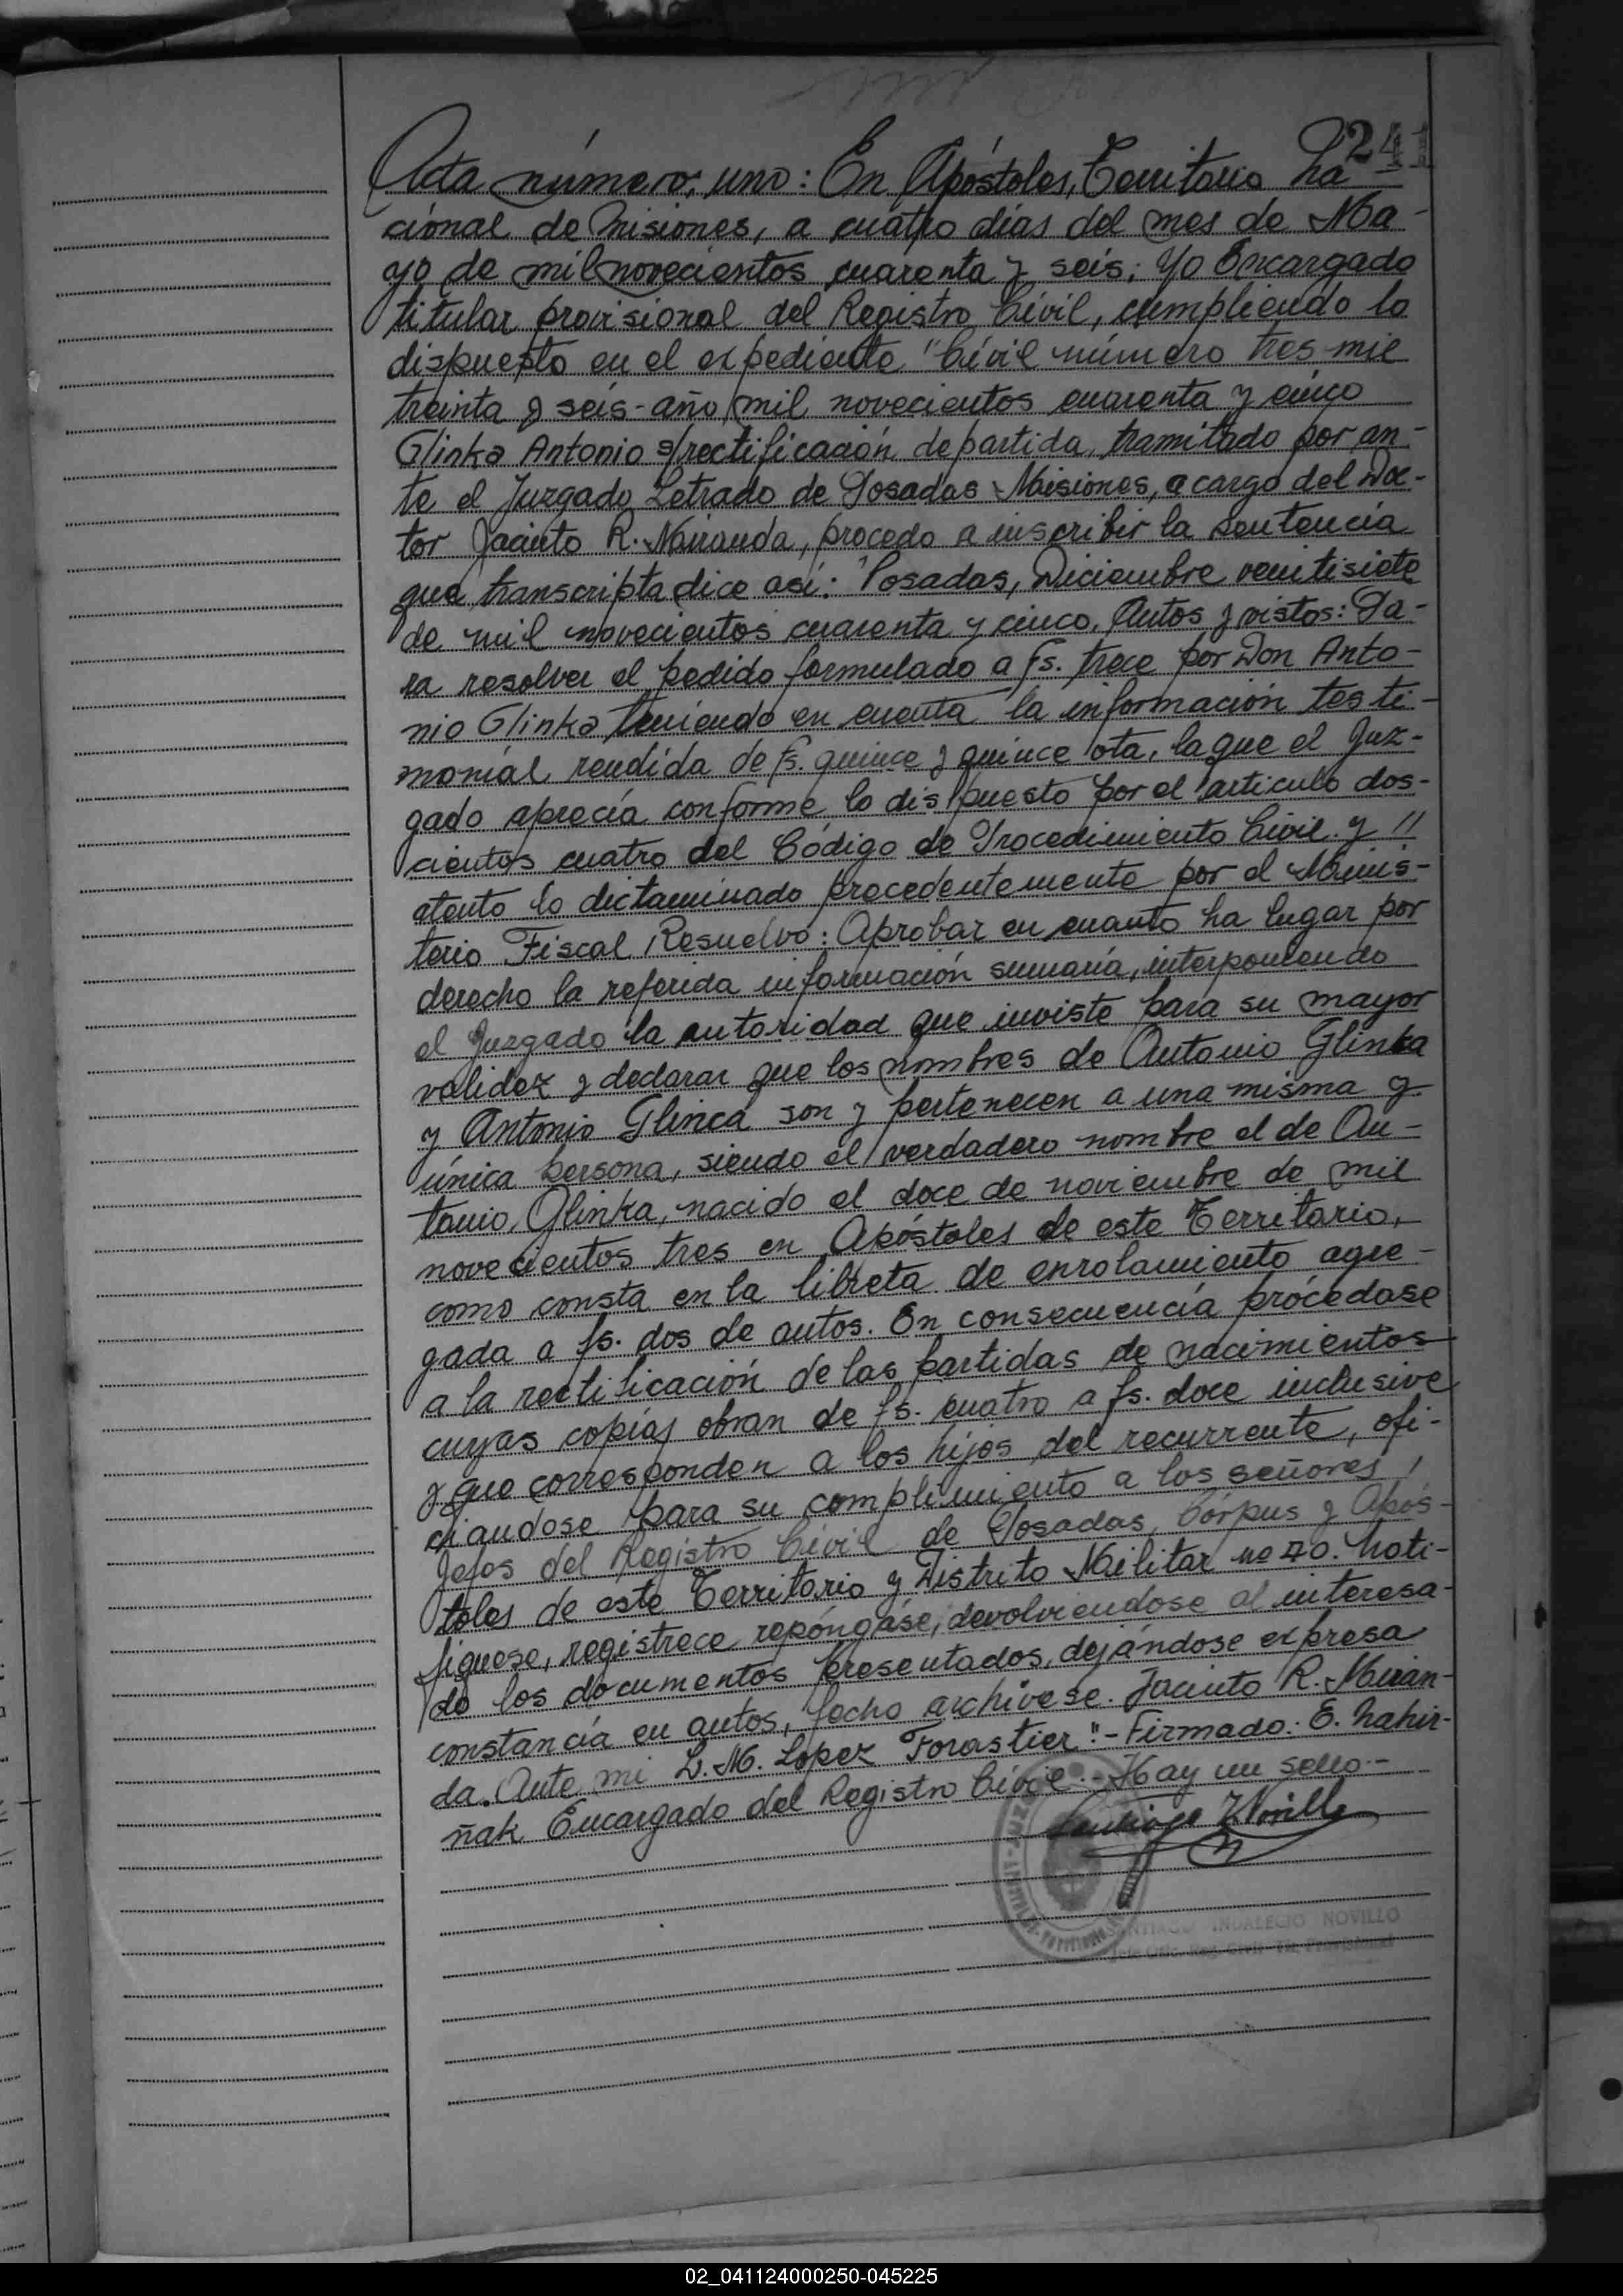 241
Acta número uno: En Apóstoles, Territorio Na-
cional de Misiones, a cuatro días del mes de Ma-
yo de mil novecientos cuarenta y seis; Yo Encargado
titular provisional del Registro Civil, cumpliendo lo
dispuesto en el expediente "Civil número tres mil
treinta y seis-año mil novecientos cuarenta y cinco
Glinka Antonio s/rectificación de partida, tramitado por an-
te el Juzgado Letrado de Posadas Misiones, a cargo del Doc-
tor Jacinto R. Miranda, procedo a inscribir la sentencia
que transcripta dice así: "Posadas, Diciembre veintisiete
de mil novecientos cuarenta y cinco. Autos y vistos: Pa-
ra resolver el pedido formulado a fs. trece por Don Anto-
nio Glinka teniendo en cuenta la información testi-
monial rendida de fs. quince y quince vta, la que el Juz-
gado aprecia conforme lo dispuesto por el artículo dos-
cientos cuatro del Código de Procedimiento Civil y //
atento lo dictaminado precedentemente por el Minis-
terio Fiscal, Resuelvo: Aprobar en cuanto ha lugar por
derecho la referida información sumaria, interponiendo
el Juzgado la autoridad que inviste para su mayor
validez y declarar que los nombres de Antonio Glinka
y Antonio Glinca son y pertenecen a una misma y
única persona, siendo el verdadero nombre el de An-
tonio Glinka, nacido el doce de noviembre de mil
novecientos tres en Apóstoles de este Territorio,
como consta en la libreta de enrolamiento agre-
gada a fs. dos de autos. En consecuencia prócedase
a la rectificación de las partidas de nacimientos
cuyas copias obran de fs. cuatro a fs. doce inclusive
y que corresponden a los hijos del recurrente, ofi-
ciandose para su cumplimiento a los señores /
Jefes del Registro Civil de Posadas, Córpus y Após-
toles de este Territorio y Distrito Militar no 40. Noti-
fiquese, registrece repóngase, devolviendose al interesa-
do los documentos presentados, dejándose expresa
constancia en autos, fecho archivese. Jacinto R. Miran-
da. Ante mi L. M. Lopez Forastier".- Firmado: E. Nahir-
ñak Encargado del Registro Civil.- Hay un sello.-
Santiago I. Novillo
SANTIAGO INDALECIO NOVILLO
Jefe Ofic. Reg. Civil Tit. Provisional
02_041124000250-045225